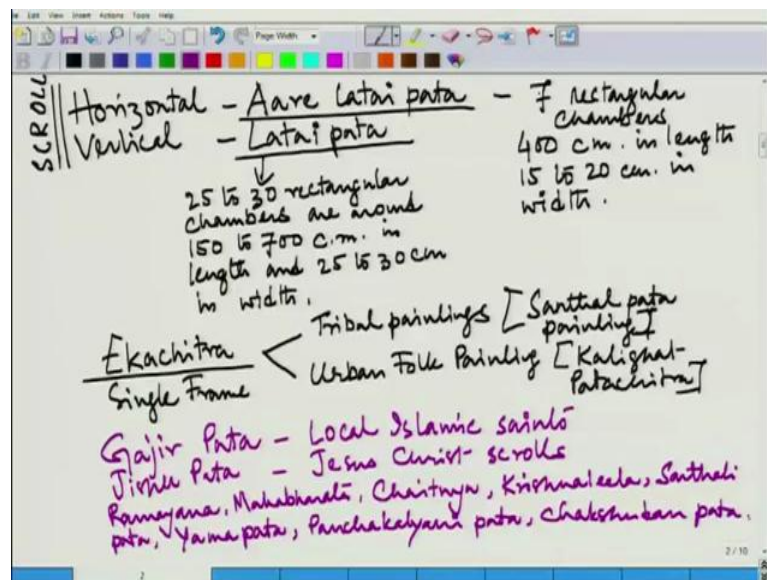 Edit View Insert Actions Tools Help
Page Width
SCROLL
Horizontal - Aare Latai pata - 7 rectangular chambers
Vertical - Latai pata
400 cm. in length
15 to 20 cm. in width.
25 to 30 rectangular
chambers are around
150 to 700 c.m. in
length and 25 to 30 cm
in width.
Ekachitra
Single Frame
Tribal paintings [Santhal pata painting]
Urban Folk Painting [Kalighat Patachitra]
Gajir Pata - Local Islamic saints
Jishu Pata - Jesus Christ scrolls
Ramayana, Mahabharata, Chaitnya, Krishnaleela, Santhali
pata, Yama pata, Panchakalyani pata, Chakshudan pata.
2 / 10
2